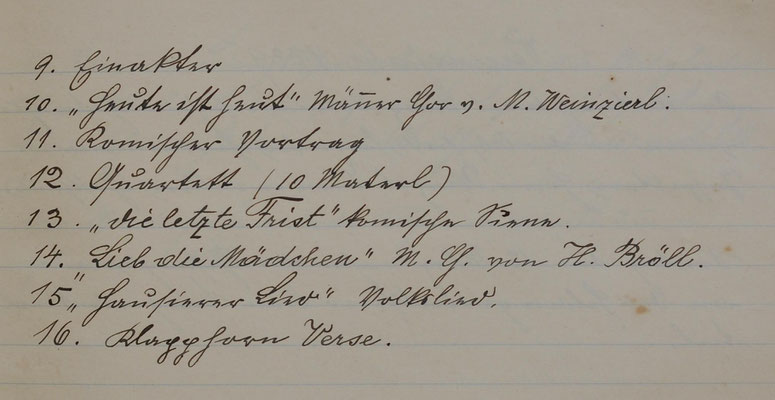 9. Einakter
10. „Heute ist heut" Männer Chor v. M. Weinzierl.
11. Komischer Vortrag
12. Quartett (10 Materl)
13. „die letzte Frist" komische Scene.
14. „Lieb die Mädchen" M. Ch. von H. Bröll.
15 „Hausierer Lied" Volkslied.
16. Klapphorn Verse.